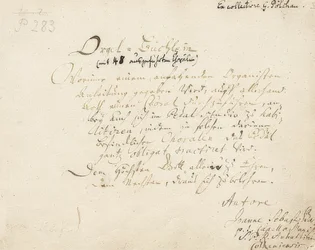 Ex collectione G. Pölchau.
P 283
Orgel-Büchlein
(mit 48 ausgeführten Chorälen)
Worinne einem anfahenden Organisten
Anleitung gegeben wird, auff allerhand
Arth einen Choral durchzuführen, an-
bey auch sich im Pedal studio zu habi-
litiren, indem in solchen darinne
befindlichen Choralen das Pedal
gantz obligat tractiret wird.
Dem Höchsten Gott allein zu Ehren,
Dem Nechsten, draus sich zu belehren.
Autore
Joanne Sebast: Bach
p. t. Capellae Magistri
S. P. R. Anhaltini-
Cotheniensis.